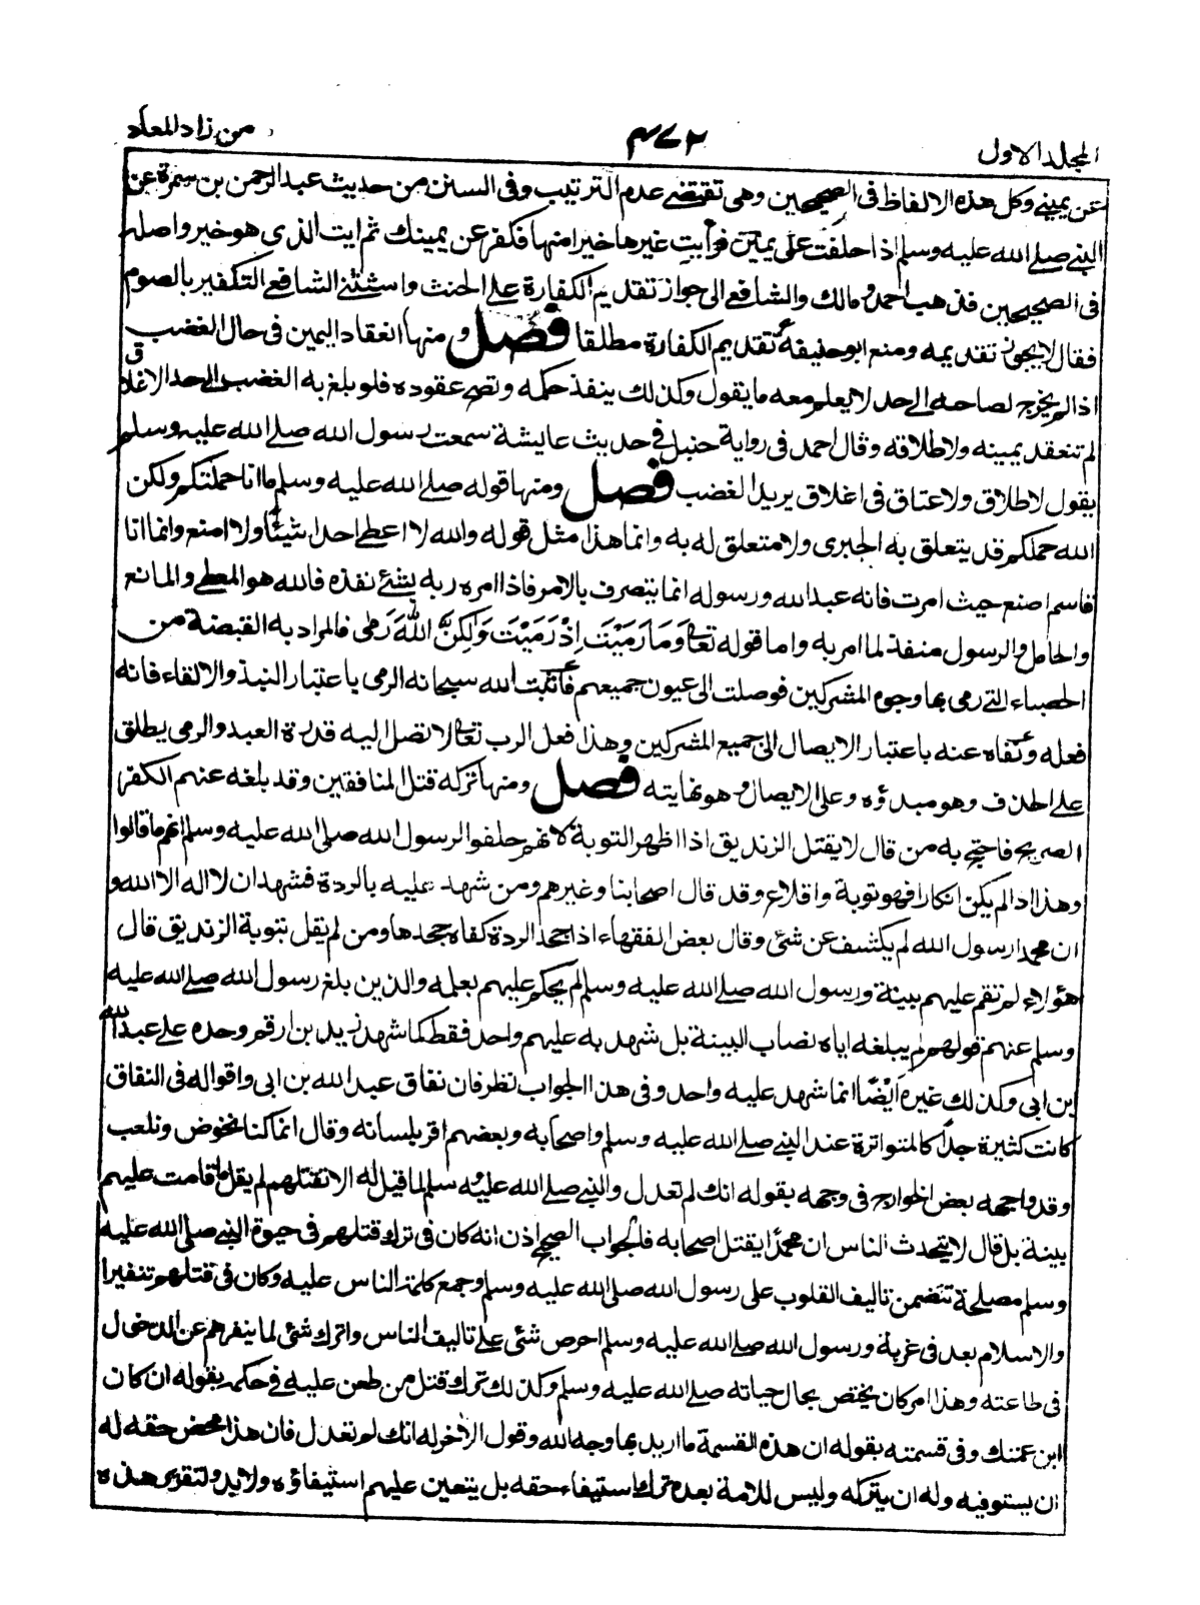 المجلد الاول ٤٧٢ من زاد المعاد
عن يمينى وكل هذه الالفاظ فى الصحيحين وهى تقتضے عدم الترتيب وفى السنن من حديث عبد الرحمن بن سمرة عن
النبے صلے الله عليه وسلم اذا حلفت على يمين فرأيت غيرها خيرا منها فكفر عن يمينك ثم ايت الذى هو خير واصله
فى الصحيحين فذهب احمد و مالك والشافعے الى جواز تقديم الكفارة علے الحنث واستثنے الشافعے التكفير بالصوم
فقال لا يجوز تقديمه ومنع ابو حنيفة تقديم الكفارة مطلقا فصل ومنها انعقاد اليمين فى حال الغضب
اذا لم يخرج لصاحبه الى حد لا يعلم معه ما يقول وكذلك ينفذ حكمه وتصح عقوده فلو بلغ به الغضب الى حد الاغلاق
لم تنعقد يمينه ولا طلاقه وقال احمد فى رواية حنبل فى حديث عايشة سمعت رسول الله صلے الله عليه وسلم
يقول لا طلاق ولا عتاق فى اغلاق يريد الغضب فصل ومنها قوله صلے الله عليه وسلم ما انا حملتكم ولكن
الله حملكم قد يتعلق به الجبرى ولا متعلق له به وانما هذا مثل قوله والله لا اعطے احدا شيئا ولا امنع وانما انا
قاسم اصنع حيث امرت فانه عبد الله ورسوله انما يتصرف بالامر فاذا امره ربه بشئ نفذه فالله هو المعطے والمانع
والحامل والرسول منفذ لما امر به واما قوله تعالى وَمَا رَمَيْتَ اِذْ رَمَيْتَ وَلٰكِنَّ اللّٰهَ رَمٰى فالمراد به القبضة من
الحصباء التے رمى بها وجوه المشركين فوصلت الى عيون جميعهم فأثبت الله سبحانه الرمى باعتبار النبذ والالقاء فانه
فعله ونفاه عنه باعتبار الايصال الى جميع المشركين وهذا فعل الرب تعالى لا تصل اليه قدرة العبد والرمى يطلق
علے الحذف وهو مبدؤه وعلى الايصال وهو نهايته فصل ومنها تركه قتل المنافقين وقد بلغه عنهم الكفر
الصريح فاحتج به من قال لا يقتل الزنديق اذا اظهر التوبة لانهم حلفوا لرسول الله صلى الله عليه وسلم انهم ما قالوا
وهذا اذا لم يكن انكارا فهو توبة واقلاع وقد قال اصحابنا وغيرهم ومن شهد عليه بالردة فشهد ان لا اله الا الله و
ان محمدا رسول الله لم يكشف عن شئ وقال بعض الفقهاء اذا جحد الردة كفاه جحدها ومن لم يقل بتوبة الزنديق قال
هؤلاء لم تقم عليهم بينة ورسول الله صلے الله عليه وسلم لم يحكم عليهم بعلمه والذين بلغ رسول الله صلے الله عليه
وسلم عنهم قولهم لم يبلغه اياه نصاب البينة بل شهد به عليهم واحد فقط كما شهد زيد بن ارقم وحده علے عبد الله
ابن ابى وكذلك غيره ايضًا انما شهد عليه واحد وفى هذا الجواب نظر فان نفاق عبد الله بن ابى واقواله فى النفاق
كانت كثيرة جدًا كالمتواترة عند النبے صلے الله عليه وسلم واصحابه وبعضهم اقر بلسانه وقال انما كنا نخوض ونلعب
وقد واجهه بعض الخوارج فى وجهه بقوله انك لم تعدل والنبے صلے الله عليه وسلم لما قيل له الا تقتلهم لم يقل ما قامت عليهم
بينة بل قال لا يتحدث الناس ان محمدًا يقتل اصحابه فالجواب الصحيح اذن انه كان فى ترك قتلهم فى حيوة النبے صلى الله عليه
وسلم مصلحة تتضمن تاليف القلوب على رسول الله صلى الله عليه وسلم وجمع كلمة الناس عليه وكان فى قتلهم تنفيرا
والاسلام بعد فى غربة ورسول الله صلے الله عليه وسلم احرص شئ علے تاليف الناس واترك شئ لما ينفرهم عن الدخول
فى طاعته وهذا امر كان يختص بحال حياته صلے الله عليه وسلم وكذلك ترك قتل من طعن عليه فى حكمه بقوله ان كان
ابن عمتك وفى قسمته بقوله ان هذه القسمة ما اريد بها وجه الله وقول الآخر له انك لم تعدل فان هذا محض حقه له
ان يستوفيه وله ان يتركه وليس للامة بعده ترك استيفاء حقه بل يتعين عليهم استيفاؤه ولا بد ولتقرير هذه